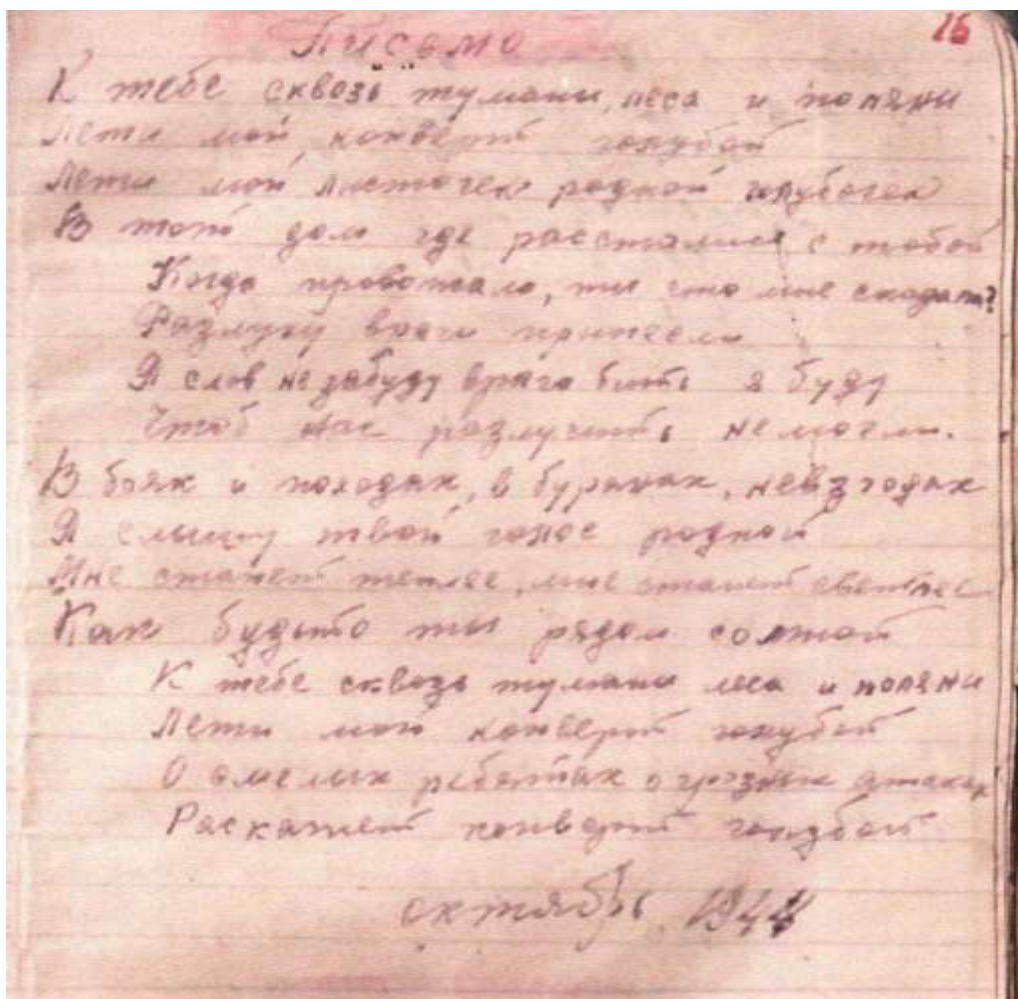 16
Письмо
К тебе сквозь тумани, леса и поляни
Лети мой конверт голубой
Лети мой листочек родной голубочек
В тот дом где расстались с тобой
Когда провожала, ти что мне сказала?
Разлуку враги принесли
Я слов не забуду врага бить я буду
Чтоб нас разлучить не могли.
В боях и походах, в буранах, невзгодах
Я слышу твой голос родной
Мне станет теплее, мне станет светлее
Как будьто ти рядом со мной
К тебе сквозь тумани леса и поляни
Лети мой конверт голубой
О смелых ребятах о грозных атаках
Раскажет конверт голубой
октябрь 1944